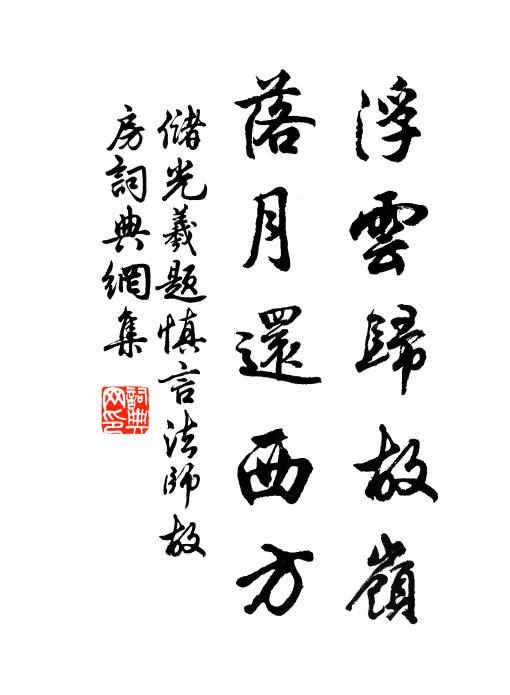 浮雲歸故嶺
落月還西方
儲光羲題慎言法師故
房詞典網集
詞典
网印